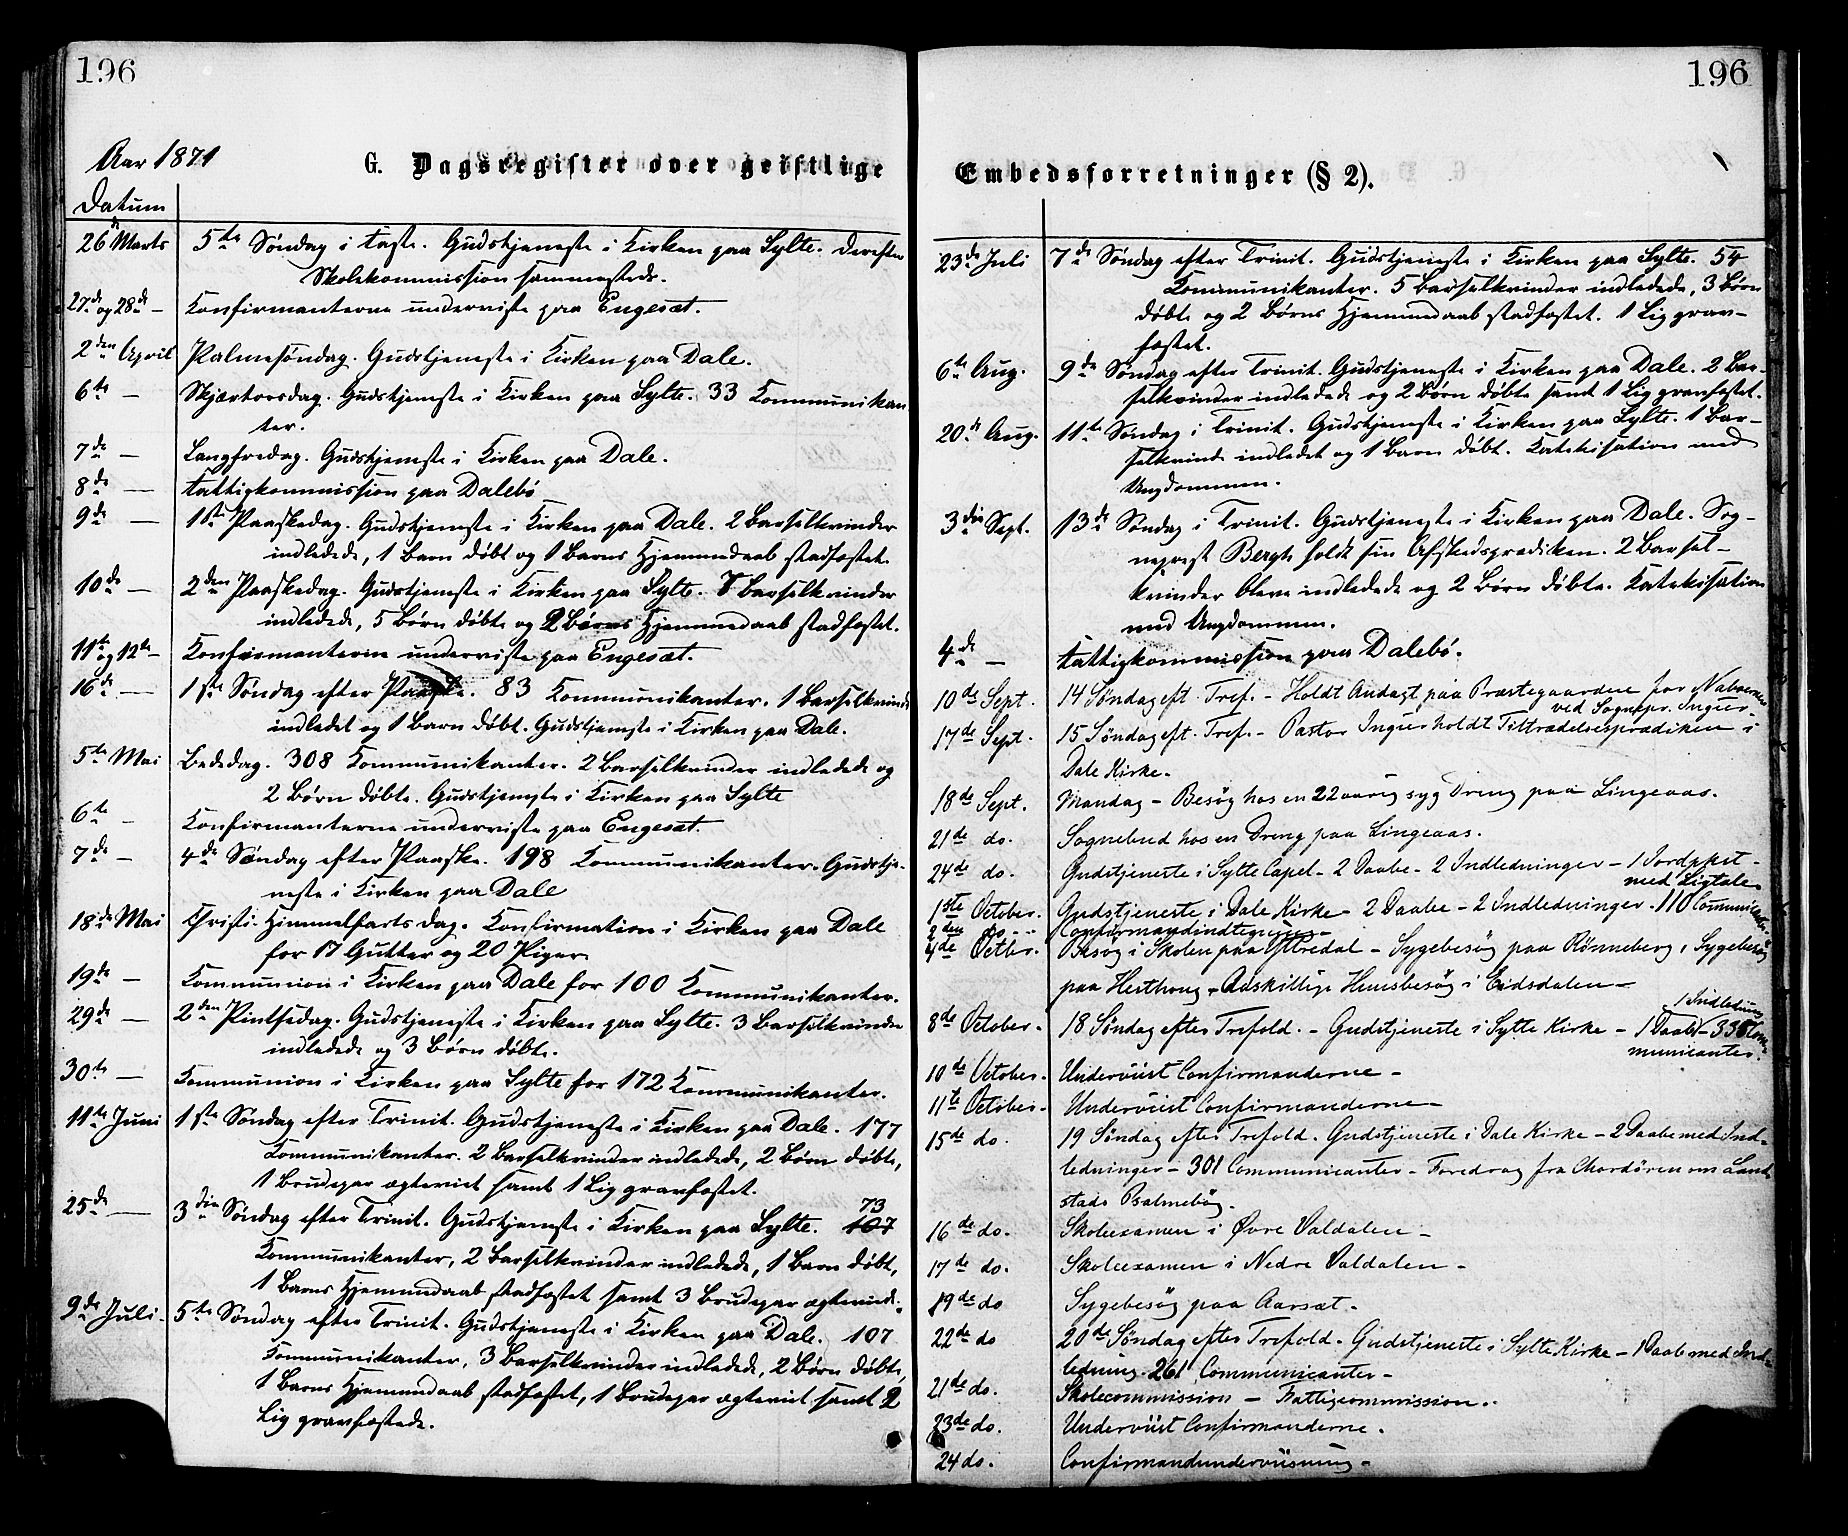 196
Aar 1871
G. Dagsregister over geistlige
Datum
26de Marts 5te Søndag i Faste. Gudstjeneste i Kirken paa Sylte. Derefter
Skolekommission sammesteds.
27de og 28de — Konfirmanterne underviste paa Engesæt.
2den April Palmesøndag. Gudstjeneste i Kirken paa Dale.
6te — Skjærtorsdag. Gudstjeneste i Kirken paa Sylte. 33 Kommunikan
ter.
7de — Langfredag. Gudstjeneste i Kirken paa Dale.
8de — Fattigkommission paa Dalebø
9de — 1ste Paaskedag. Gudstjeneste i Kirken paa Dale. 2 Barselkvinder
indledede, 1 Barn døbt og 1 Barns Hjemmedaab stadfæstet.
10de — 2den Paaskedag. Gudstjeneste i Kirken paa Sylte. 7 Barselkvinder
indledede, 5 Børn døbte og 2 Børns Hjemmedaab stadfæstet.
11te og 12te — Konfirmanterne underviste paa Engesæt.
16de — 1ste Søndag efter Paaske. 83 Kommunikanter. 1 Barselkvinde
indledet og 1 Barn døbt. Gudstjeneste i Kirken paa Dale.
5te Mai Bededag. 308 Kommunikanter. 2 Barselkvinder indledede og
2 Børn døbte. Gudstjeneste i Kirken paa Sylte
6te — Konfirmanterne underviste paa Engesæt.
7de — 4de Søndag efter Paaske. 198 Kommunikanter. Gudstje-
neste i Kirken paa Dale
18de Mai Christi Himmelfarts dag. Konfirmation i Kirken paa Dale
for 17 Gutter og 20 Piger.
19de — Kommunion i Kirken paa Dale for 100 Kommunikanter.
29de — 2den Pintsedag. Gudstjeneste i Kirken paa Sylte. 3 Barselkvinder
indledede og 3 Børn døbte.
30te — Kommunion i Kirken paa Sylte for 172 Kommunikanter.
11te Juni 1ste Søndag efter Trinit. Gudstjeneste i Kirken paa Dale. 177
Kommunikanter. 2 Barselkvinder indledede, 2 Børn døbte,
1 Brudepar ægteviet samt 1 Lig gravfæstet.
73
25de — 3die Søndag efter Trinit. Gudstjeneste i Kirken paa Sylte. 107
Kommunikanter, 2 Barselkvinder indledede, 1 Barn døbt,
1 Barns Hjemmedaab stadfæstet samt 3 Brudepar ægteviede.
9de Juli. 5te Søndag efter Trinit. Gudstjeneste i Kirken paa Dale. 107
Kommunikanter, 3 Barselkvinder indledede, 2 Børn døbte,
1 Barns Hjemmedaab stadfæstet, 1 Brudepar ægteviet samt 2
Lig gravfæstede.
196
Embedsforretninger (§ 2).
23de Juli 7de Søndag efter Trinit. Gudstjeneste i Kirken paa Sylte. 54
Kommunikanter. 5 Barselkvinder indledede, 3 Børn
døbte og 2 Børns Hjemmedaab stadfæstet. 1 Lig grav-
fæstet.
6te Aug. 9de Søndag efter Trinit. Gudstjeneste i Kirken paa Dale. 2 Bar-
selkvinder indledede og 2 Børn døbte samt 1 Lig gravfæstet.
20de Aug. 11te Søndag i Trinit. Gudstjeneste i Kirken paa Sylte. 1 Bar-
selkvinde indledet og 1 Barn døbt. Katekisation med
Ungdommen.
3die Sept. 13de Søndag i Trinit. Gudstjeneste i Kirken paa Dale. Sog-
neprest Bergh holdt sin Afskedsprædiken. 2 Barsel-
kvinder bleve indledede og 2 Børn døbte. Katekisation
med Ungdommen.
4de — Fattigkommission paa Dalebø.
10de Sept. 14 Søndag eft. Tref. - Holdt Andagt paa Præstegaarden for Naboerne
ved Sognepr. Ingier.
17de Sept. 15 Søndag eft. Tref. - Pastor Ingier holdt Tiltrædelsesprædiken i
Dale Kirke.
18de Sept. Mandag - Besøg hos en 22 aarig syg Dreng paa Lingeaas.
21de do. Sognebud hos en Dreng paa Lingeaas.
24de do. Gudstjeneste i Sylte Capel - 2 Daabe - 2 Indledninger - 1 Jordpkst -
med Ligtale.
1ste October. Gudstjeneste i Dale Kirke - 2 Daabe - 2 Indledninger - 110 Communicanter.
2den do - Confirmandindtegning -
4de Octbr. Besøg i Skolen paa Yttredal - Sygebesøg paa Rønneberg, Sygebesøg
paa Hesthaug - Adskillige Huusbesøg i Eidsdalen -
1 Indledning
8de October. 18 Søndag efter Trefold. - Gudstjeneste i Sylte Kirke - 1 Daab - 335 Com-
municanter.
10de October. Underviist Confirmanderne -
11te October. Underviist Confirmanderne -
15de do. 19 Søndag efter Trefold. Gudstjeneste i Dale Kirke - 2 Daabe med Ind-
ledninger - 301 Communicanter - Foredrag fra Chordøren om Land-
stads Psalmebog.
16de do. Skoleexamen i Øvre Valdalen -
17de do. Skoleexamen i Nedre Valdalen -
19de do Sygebesøg paa Aarsæt -
22de do 20de Søndag efter Trefold. Gudstjeneste i Sylte Kirke - 1 Daab med Ind-
ledning. 261 Communicanter -
21de do. Skolecommission - Fattigcommission.
23de do. Underviist Confirmanderne.
24 do. Confirmandunderviisning -